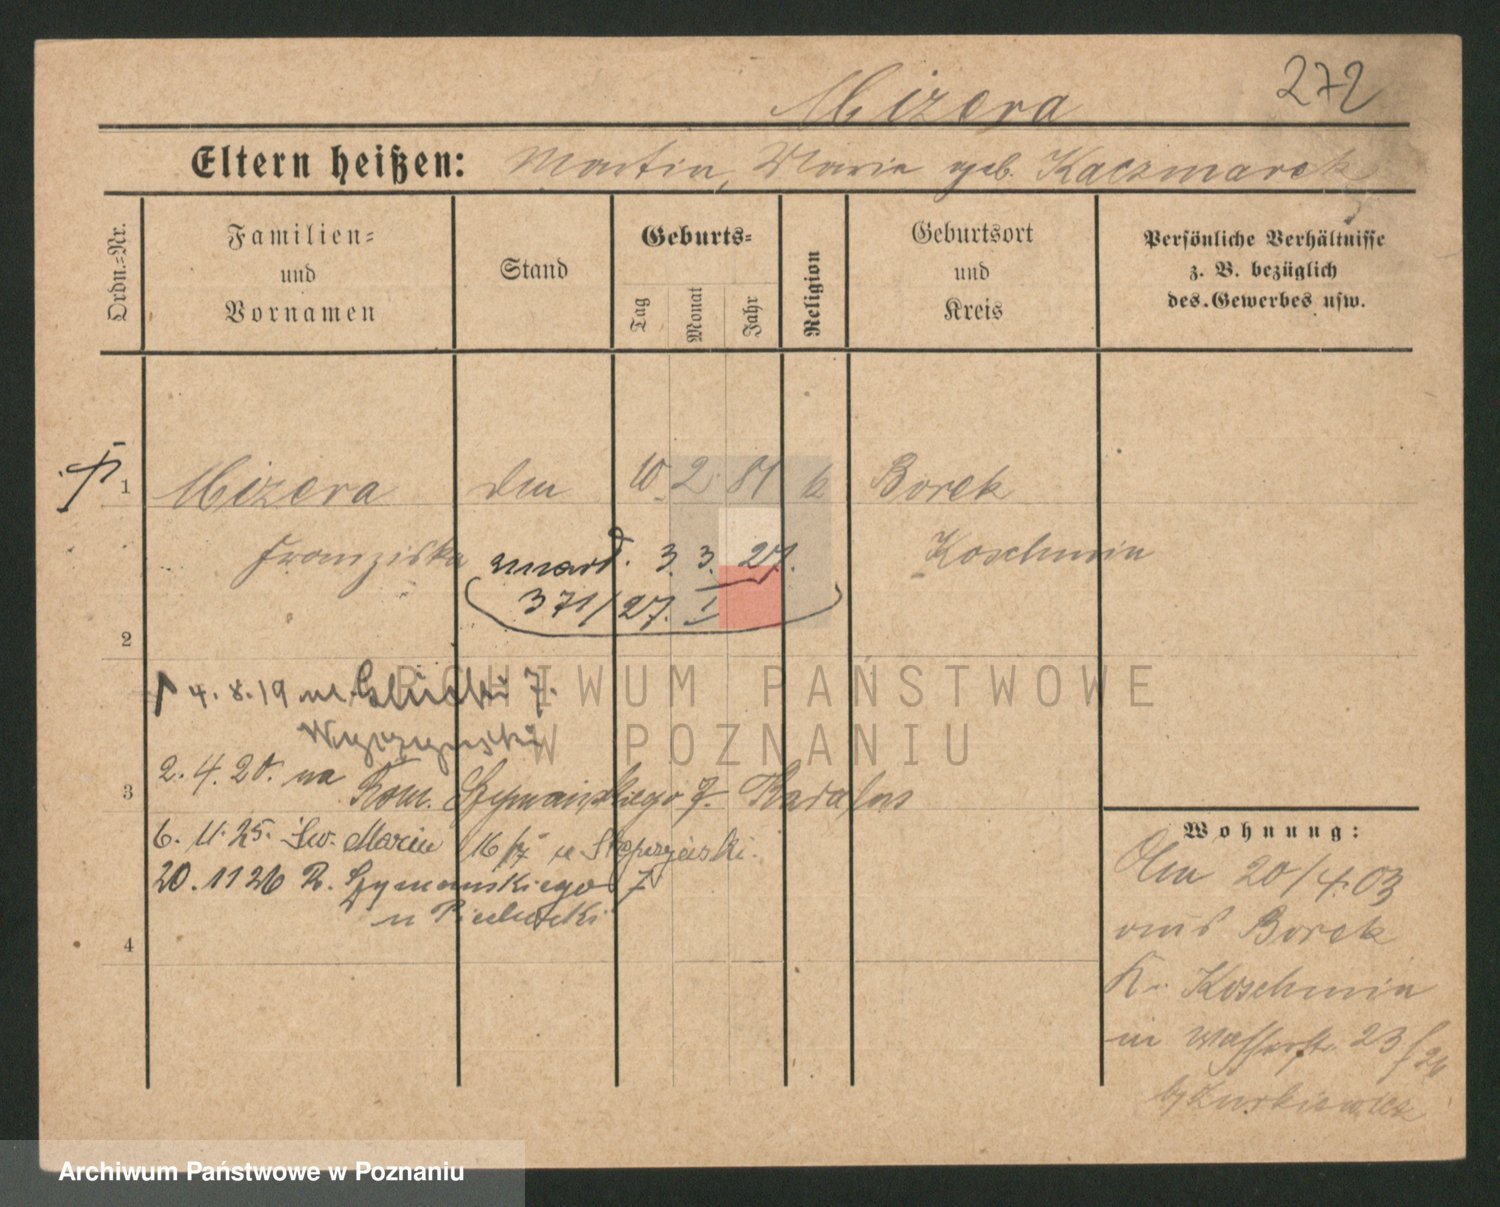 272
Mizera
Eltern heißen: Martin, Marie geb. Kaczmarek
Ordn.-Nr.
Familien- und Vornamen
Stand
Geburts-
Tag
Monat
Jahr
Religion
Geburtsort und Kreis
Persönliche Verhältnisse
z. B. bezüglich
des Gewerbes usw.
1 Mizera 10 2 81 k Borek
Franziska Koschmin
zmarł. 3. 3. 27.
371/27. I
2
4.8.19 7.
Wyszyński
2.4.20. na Rom. Szymańskiego 7.
3
6. 11. 25. Św. Marcin 16/17
20.1126 R. Szymańskiego 7
u
4
Wohnung:
20/4.03
aus Borek
K. Koschmin
in Wasserstr. 23
ARCHIWUM PAŃSTWOWE
W POZNANIU
Archiwum Państwowe w Poznaniu